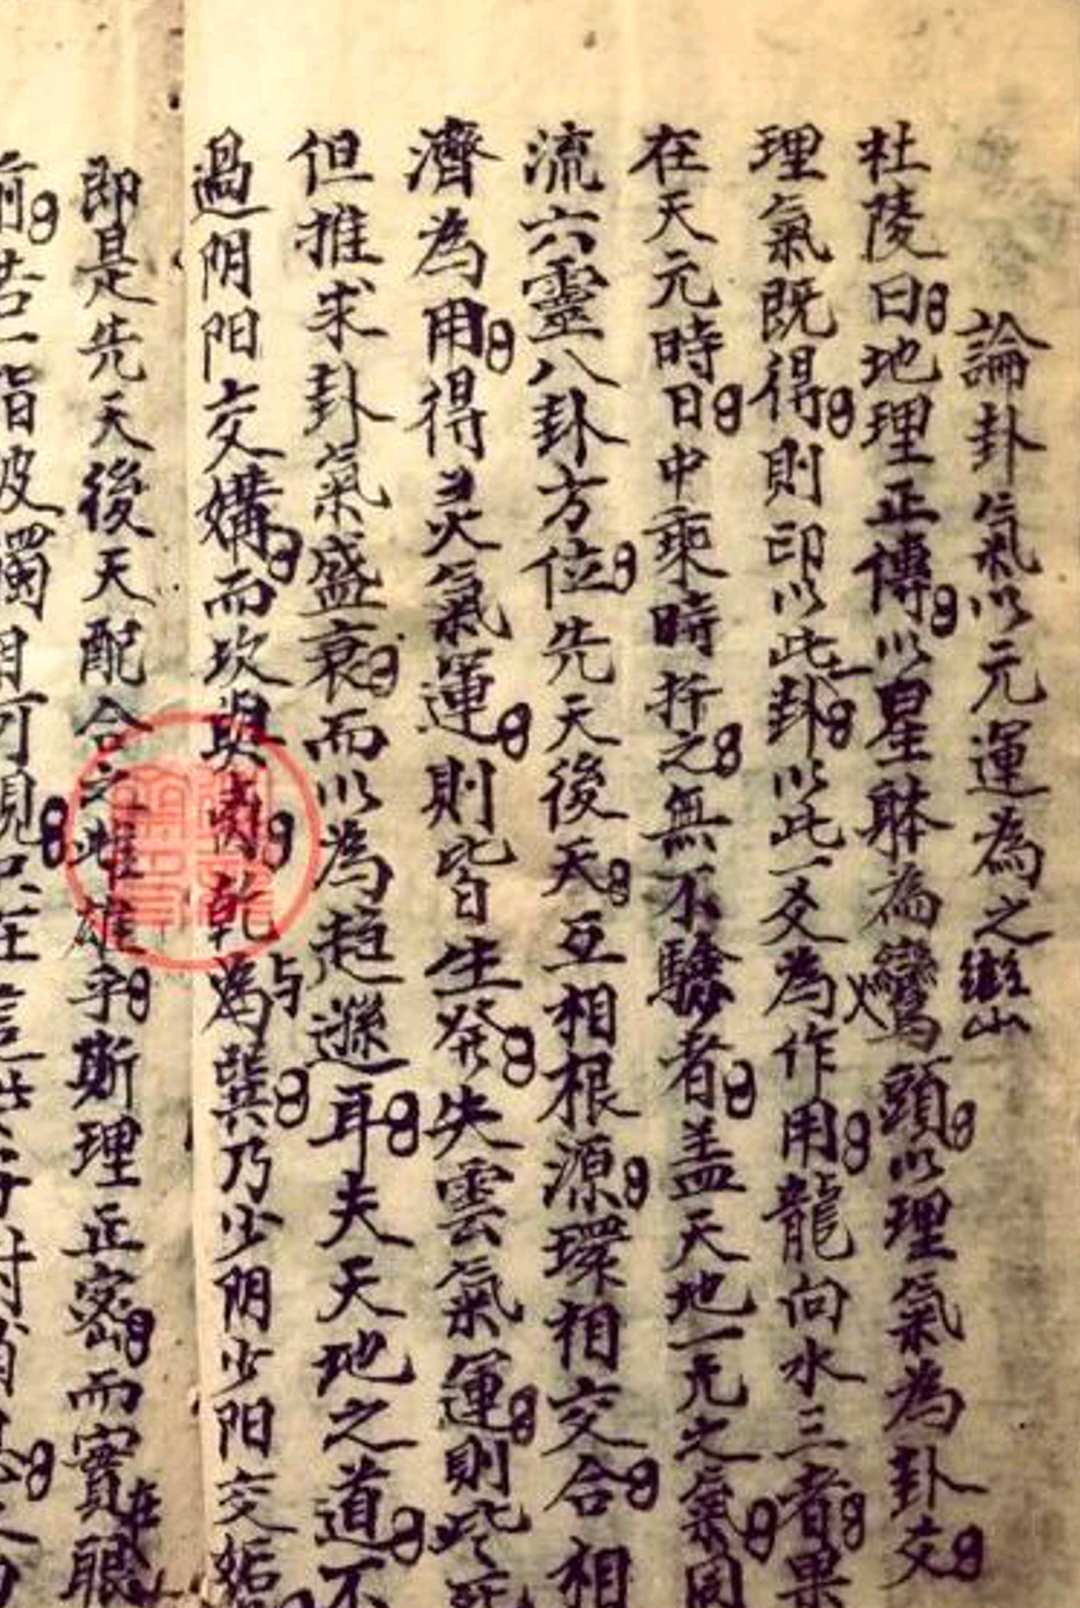 論卦氣以元運為之
杜陵曰地理正傳以星躰為巒頭以理氣為卦交
理氣既得則印以此卦以此一爻為作用龍向水三者果
在天元時日中乘時折之無不驗者盖天地一元之氣周
流六靈八卦方位先天後天互相根源環相交合相
濟為用得氣運則皆生發失雲氣運則
但推求卦氣盛衰而以為趋遜耳夫天地之道不
過阴阳交媾而坎與離乾為與巽乃少阴少阳交姤
即是先天後天配合之雌雄乎斯理正密而實在眼
前若一指